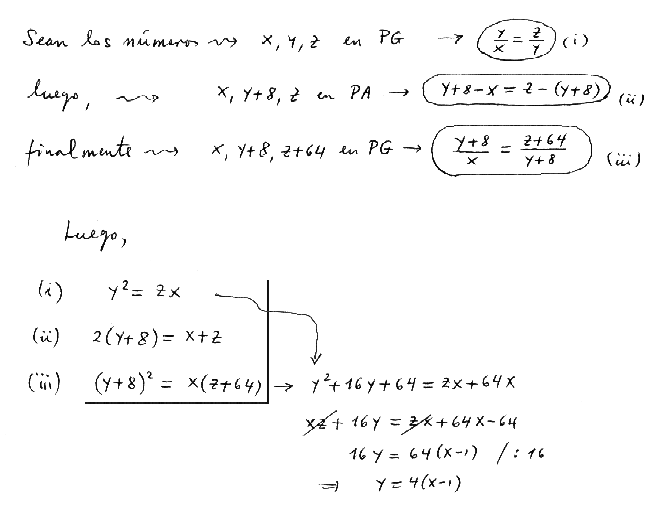 Sean los números ⇝ x, y, z en PG → y/x = z/y (i)
luego, ⇝ x, y+8, z en PA → y+8-x = z-(y+8) (ii)
finalmente ⇝ x, y+8, z+64 en PG → (y+8)/x = (z+64)/(y+8) (iii)
Luego,
(i) y² = zx
(ii) 2(y+8) = x+z
(iii) (y+8)² = x(z+64) → y²+16y+64 = zx+64x
xz + 16y = zx + 64x-64
16y = 64(x-1) /:16
⇒ y = 4(x-1)